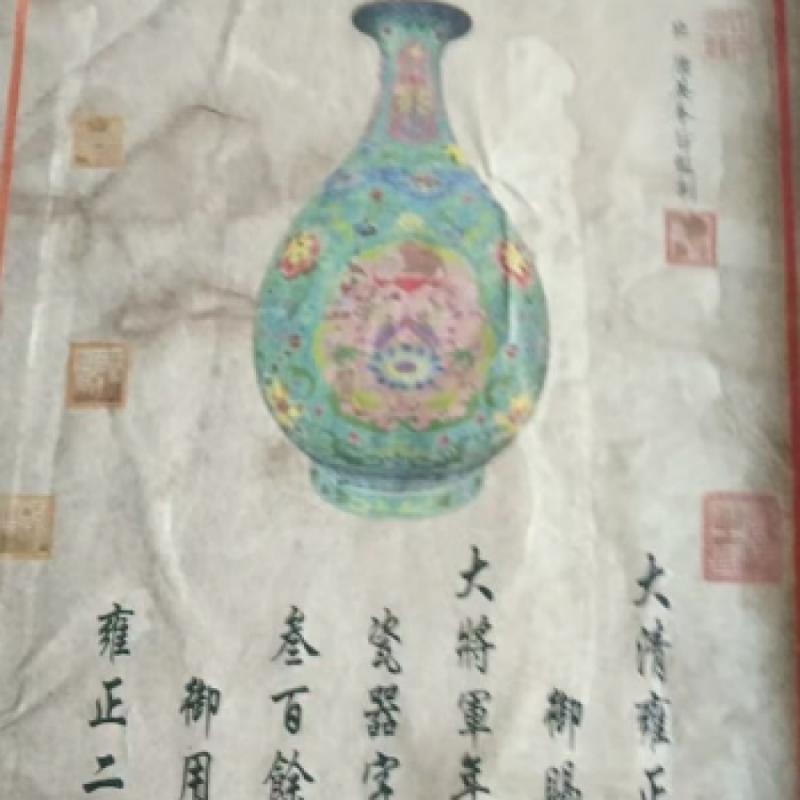 大清雍正
御賜
大將軍年
瓷器字
叁百餘
御用
雍正二